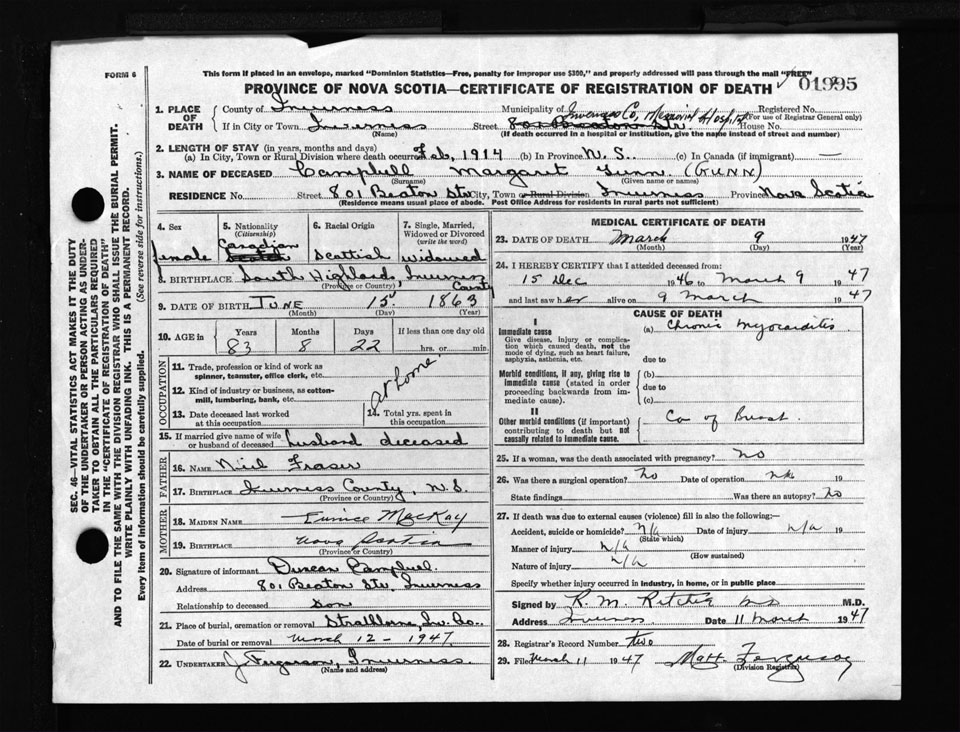 FORM 6
This form if placed in an envelope, marked "Dominion Statistics—Free, penalty for improper use $300," and properly addressed will pass through the mail "FREE"
PROVINCE OF NOVA SCOTIA—CERTIFICATE OF REGISTRATION OF DEATH
01995
1. PLACE OF DEATH
County of Inverness Municipality of Inverness Co. Memorial Hospital Registered No. (For use of Registrar General only)
If in City or Town Inverness (Name) Street 801 Beaton Str. House No.
(If death occurred in a hospital or institution, give the name instead of street and number)
2. LENGTH OF STAY (in years, months and days)
(a) In City, Town or Rural Division where death occurred Feb, 1914 (b) In Province N. S. (c) In Canada (if immigrant) —
3. NAME OF DECEASED Campbell Margaret Gunn (GUNN)
(Surname) (Given name or names)
RESIDENCE No. Street 801 Beaton Str City, Town or Rural Division Inverness Province Nova Scotia
(Residence means usual place of abode. Post Office Address for residents in rural parts not sufficient)
4. Sex female
5. Nationality (Citizenship) Scotch Canadian
6. Racial Origin Scottish
7. Single, Married, Widowed or Divorced (write the word) widowed
8. BIRTHPLACE South Highlands, Inverness County
(Province or Country)
9. DATE OF BIRTH June 15 1863
(Month) (Day) (Year)
10. AGE in Years 83 Months 8 Days 22 If less than one day old hrs. or min.
OCCUPATION
11. Trade, profession or kind of work as spinner, teamster, office clerk, etc.
12. Kind of industry or business, as cotton-mill, lumbering, bank, etc.
at home
13. Date deceased last worked at this occupation
14. Total yrs. spent in this occupation
15. If married give name of wife or husband of deceased husband deceased
FATHER
16. NAME Neil Fraser
17. BIRTHPLACE Inverness County, N. S.
(Province or Country)
MOTHER
18. MAIDEN NAME Eunice MacKay
19. BIRTHPLACE Nova Scotia
(Province or Country)
20. Signature of informant Duncan Campbell.
Address 801 Beaton Str, Inverness
Relationship to deceased son
21. Place of burial, cremation or removal Strathlorne, Inv. Co.
Date of burial or removal March 12 - 1947
22. UNDERTAKER J Ferguson, Inverness.
(Name and address)
MEDICAL CERTIFICATE OF DEATH
23. DATE OF DEATH March 9 1947
(Month) (Day) (Year)
24. I HEREBY CERTIFY that I attended deceased from:
15 Dec 1946 to March 9 1947
and last saw her alive on 9 March 1947
CAUSE OF DEATH
I
Immediate cause (a) Chronic myocarditis
Give disease, injury or complication which caused death, not the mode of dying, such as heart failure, asphyxia, asthenia, etc.
due to
Morbid conditions, if any, giving rise to immediate cause (stated in order proceeding backwards from immediate cause).
(b)
due to
(c)
II
Other morbid conditions (if important) contributing to death but not causally related to immediate cause.
Ca of Breast.
25. If a woman, was the death associated with pregnancy? no
26. Was there a surgical operation? no Date of operation 19
State findings Was there an autopsy? no
27. If death was due to external causes (violence) fill in also the following:—
Accident, suicide or homicide? n/a Date of injury n/a 19
(State which)
Manner of injury n/a
(How sustained)
Nature of injury n/a
Specify whether injury occurred in industry, in home, or in public place
Signed by R. M. Ritchie M.D.
Address Inverness Date 11 March 1947
28. Registrar's Record Number two
29. Filed March 11 1947 Matt. Ferguson
(Division Registrar)
SEC. 46—VITAL STATISTICS ACT MAKES IT THE DUTY
OF THE UNDERTAKER OR PERSON ACTING AS UNDER-
TAKER TO OBTAIN ALL THE PARTICULARS REQUIRED
IN THE "CERTIFICATE OF REGISTRATION OF DEATH"
AND TO FILE THE SAME WITH THE DIVISION REGISTRAR WHO SHALL ISSUE THE BURIAL PERMIT.
WRITE PLAINLY WITH UNFADING INK. THIS IS A PERMANENT RECORD.
Every item of information should be carefully supplied. (See reverse side for instructions.)